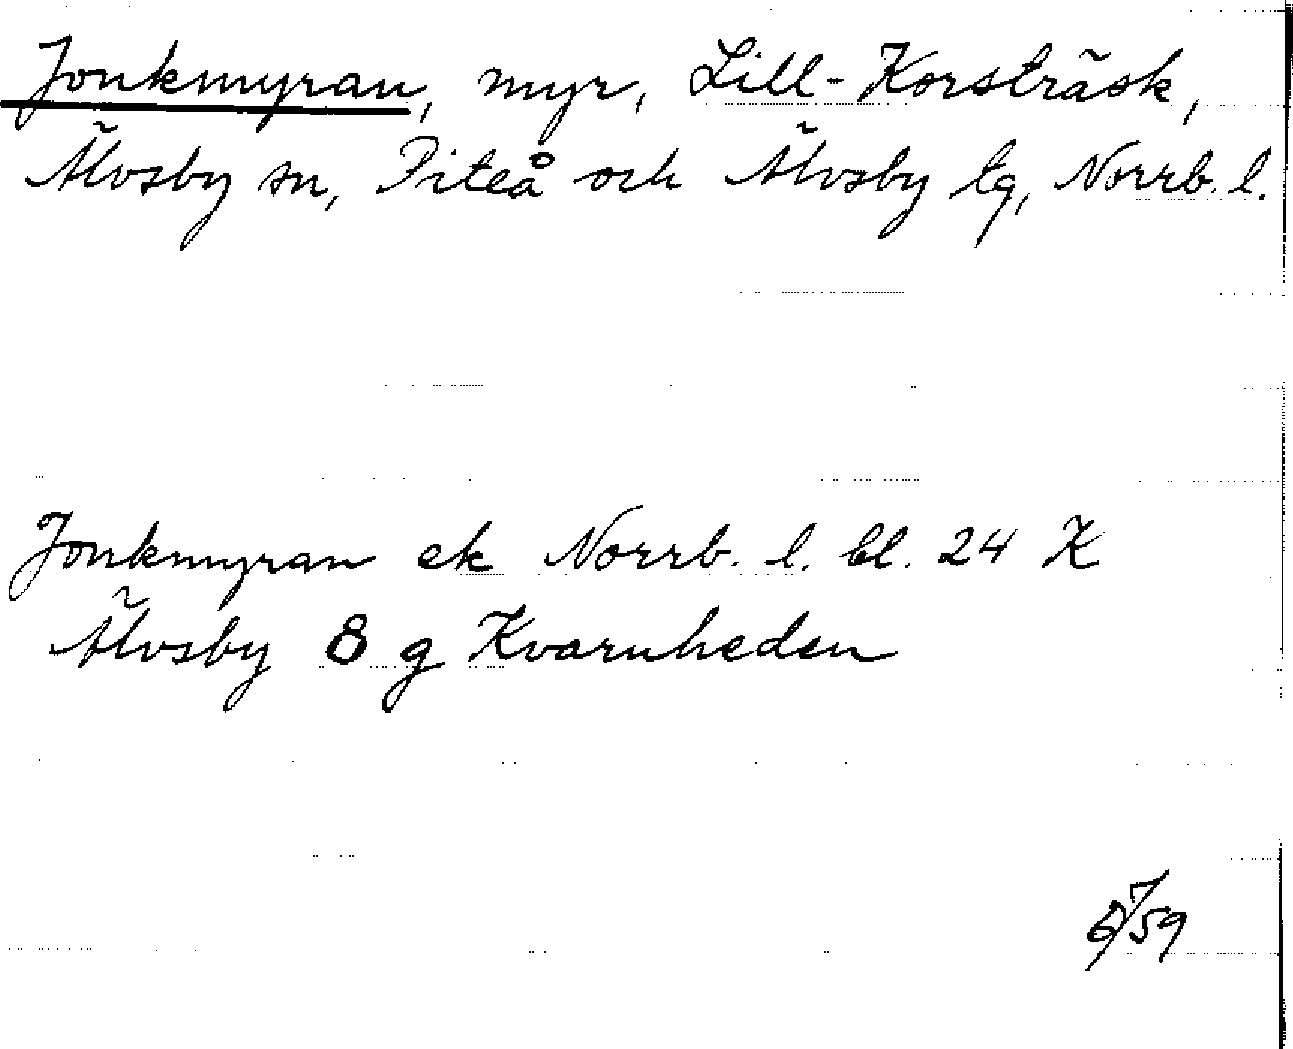 Jonkmyran, myr, Lill-Korsträsk,
Älvsby sn, Piteå och Älvsby tg, Norrb. l.
Jonkmyran ek Norrb. l. bl. 24 K
Älvsby 8 g Kvarnheden
59